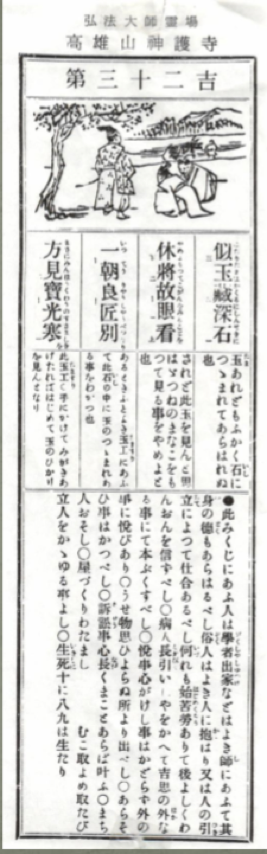 弘法大師霊場
高雄山神護寺
第三十二吉
似玉藏深石
休將故眼看
一朝良匠別
方見寶光寒
玉あれどもふかく石に
つゝまれてあらはれぬ
也
されど此玉を見んと思
はゞつねのまなこをも
つて見る事をやめよと
也
あるときふとよき玉工にあふ
て此石の中に玉のつゝまれあ
る事をわかつ也
此玉工く手にかけてみがきあ
げたればはじめて玉のひかり
を見んとなり
●此みくじにあふ人は學者出家などはよき師にあふて其
身の徳もあらはるべし俗人はよき人に抱はり又は人の引
立によつて仕合あるべし何れも始苦勞ありて後よしくわ
んおんを信ずべし○病人長引いしやをかへて吉思の外な
る事にて本ぷくすべし○悦事心がけし事はかどらず外の
事に悦びあり○うせ物思ひよらぬ所より出べし○あらそ
ひ事はかつべし○訴訟事心長くまことあらば叶ふ○まち
人おそし○屋づくりわたまし　むこ取よめ取たび
立人をかゝゆる事よし○生死十に八九は生たり